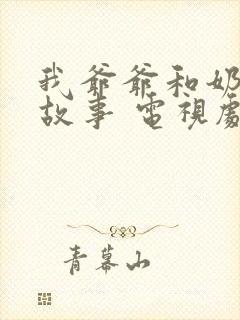 我爺爺和奶
故事 電視劇
青幕山